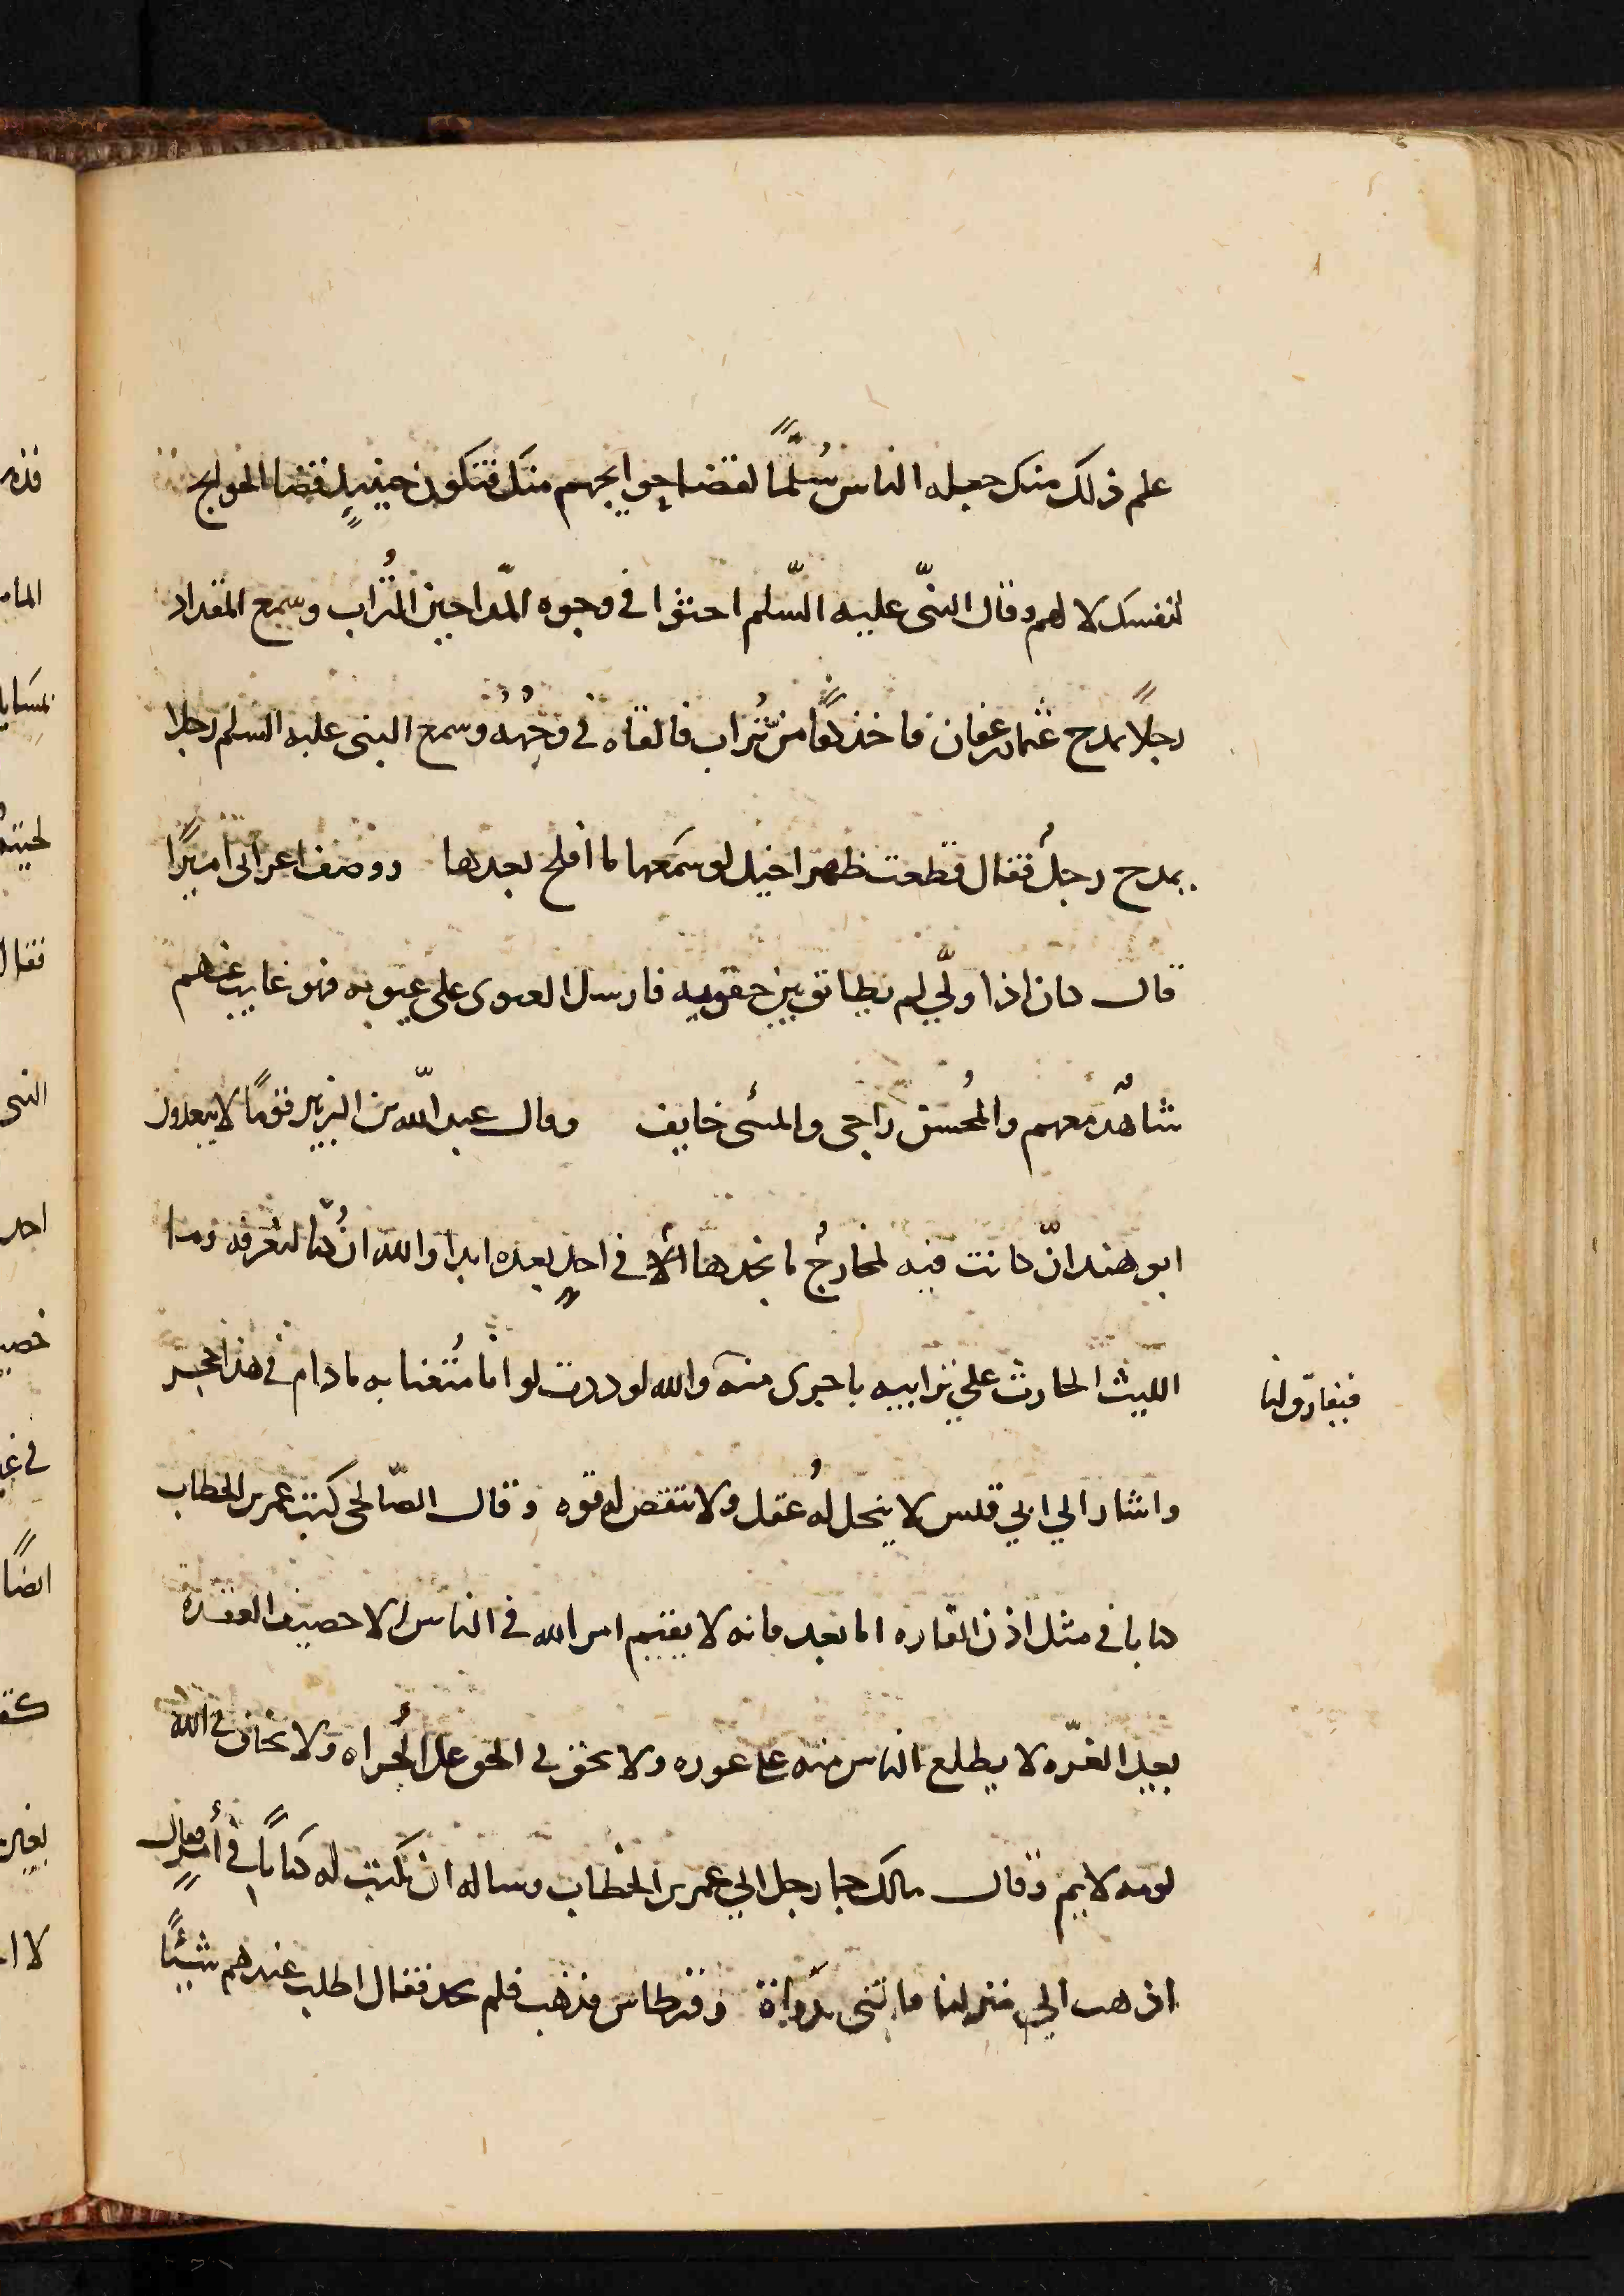 علم ذلك منك جعله الناس سُلَّمًا لقضا حوايجهم منك فتكون حينيذٍ قضا الحوايج
لنفسك لا لهم وقال النبيّ عليه السّلم احثوا في وجوه المّداحين التُراب وسمع المقداد
رجلاً يمدح عثمان بن عفان فاخذ كفًّا من تُراب فالقاه في وجهه وسمع النبي عليه السلم رجلا
يمدح رجلُ فقال قطعت ظهر اخيك لو سمعها ما افلح بعدها ووصف اعرابي اميرًا
قال كان اذا ولّي لم يطابق بين جفونه فارسل العيون على عيونه فهو غايب عنهم
شاهدٌ معهم والمُحسن راجي والمسئ خايف وقال عبد اللّه بن الزبير فومًا لا يبعدون
ابو هند انّ كانت فيه لمخارجُ ما نجدها الا في احدٍ بعده ابدا والله ان كُنّا لنفرقه وما
الليث الحارث علي براثنه باجرى منه والله لوددت لو انا مُتعنا به ما دام في هذا الحجر
فيتفارق لنا
واشار الي ابي قبيس لا ينحل لهُ عقل ولا تنتقص له قوه وقال الصّالحي كتب عمر بن الخطاب
كتابا في مثل اذن الفاره اما بعد فانه لا يقيم امر الله في الناس الا حصيف العقده
بعيد الغرّه لا يطلع الناس منه على عوره ولا يحنق في الحق على الجُراه ولا يخاف في الله
لومه لايم وقال مالك جا رجل الي عمر بن الخطاب وساله ان يكتب له كتابًا في أمرٍ فقال
اذهب الي منزلنا فاتني بدواة وقرطاس فذهب فلم يجد فقال اطلب عندهم شيئًا